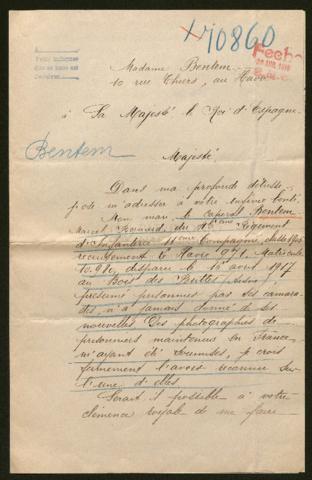 170860
Madame Bentem
10 rue Thiers, au Havre
à Sa Majesté le Roi d'Espagne.
Bentem
Majesté
Dans ma profonde détresse
j'ose m'adresser à votre infinie bonté.
Mon mari le caporal Bentem
Marcel du Régiment
d'Infanterie 11ème Compagnie, classe
recrutement le Havre 971, Matricule
disparu le 12 août 1917
au Bois des
présumé prisonnier par ses cama-
rades, n'a jamais donné de ses
nouvelles. Des photographies de
prisonniers maintenus en France
m'ayant été soumises, je crois
fermement l'avoir reconnu sur
l'une d'elles.
Serait-il possible à votre
clémence royale de me faire